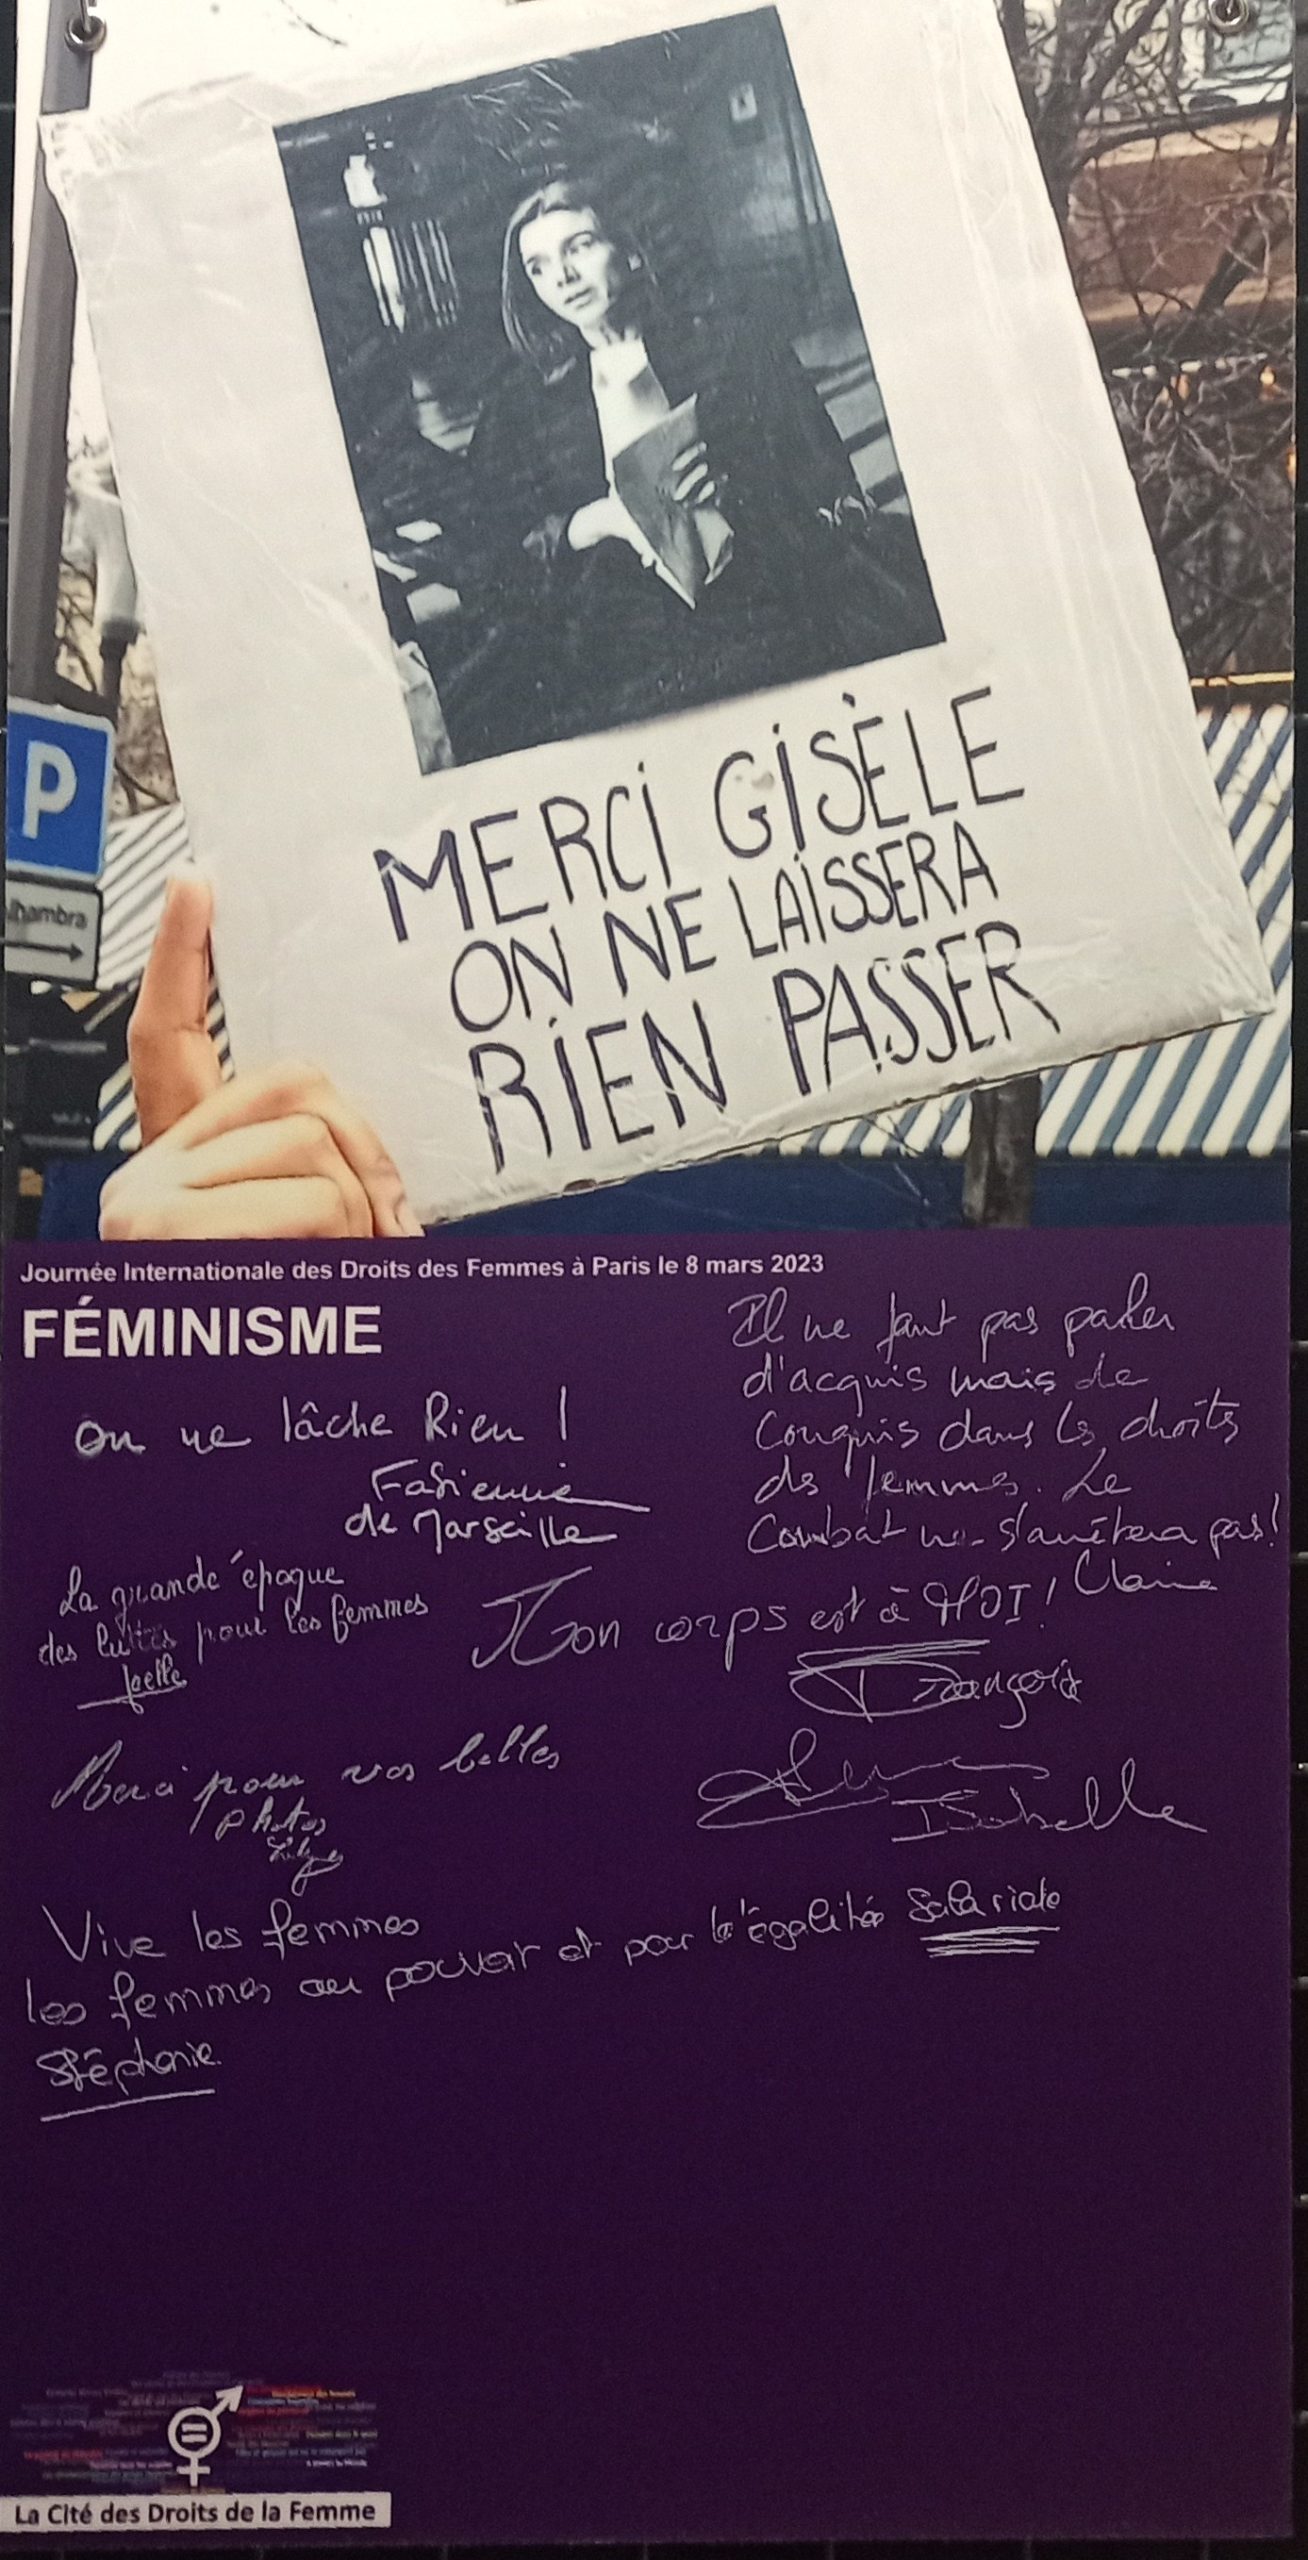 MERCI GISÈLE
ON NE LAISSERA
RIEN PASSER
P
lhambra
Journée Internationale des Droits des Femmes à Paris le 8 mars 2023
FÉMINISME
Il ne faut pas parler
d'acquis mais de
conquis dans les droits
des femmes. Le
Combat ne s'arrêtera pas!
Claire
On ne lâche Rien !
Fabienne
de Marseille
La grande époque
des luttes pour les femmes
Mon corps est à MOI !
François
Merci pour vos belles
photos
Isabelle
Vive les femmes
les femmes au pouvoir et pour l'égalité Salariale
Stéphanie
La Cité des Droits de la Femme